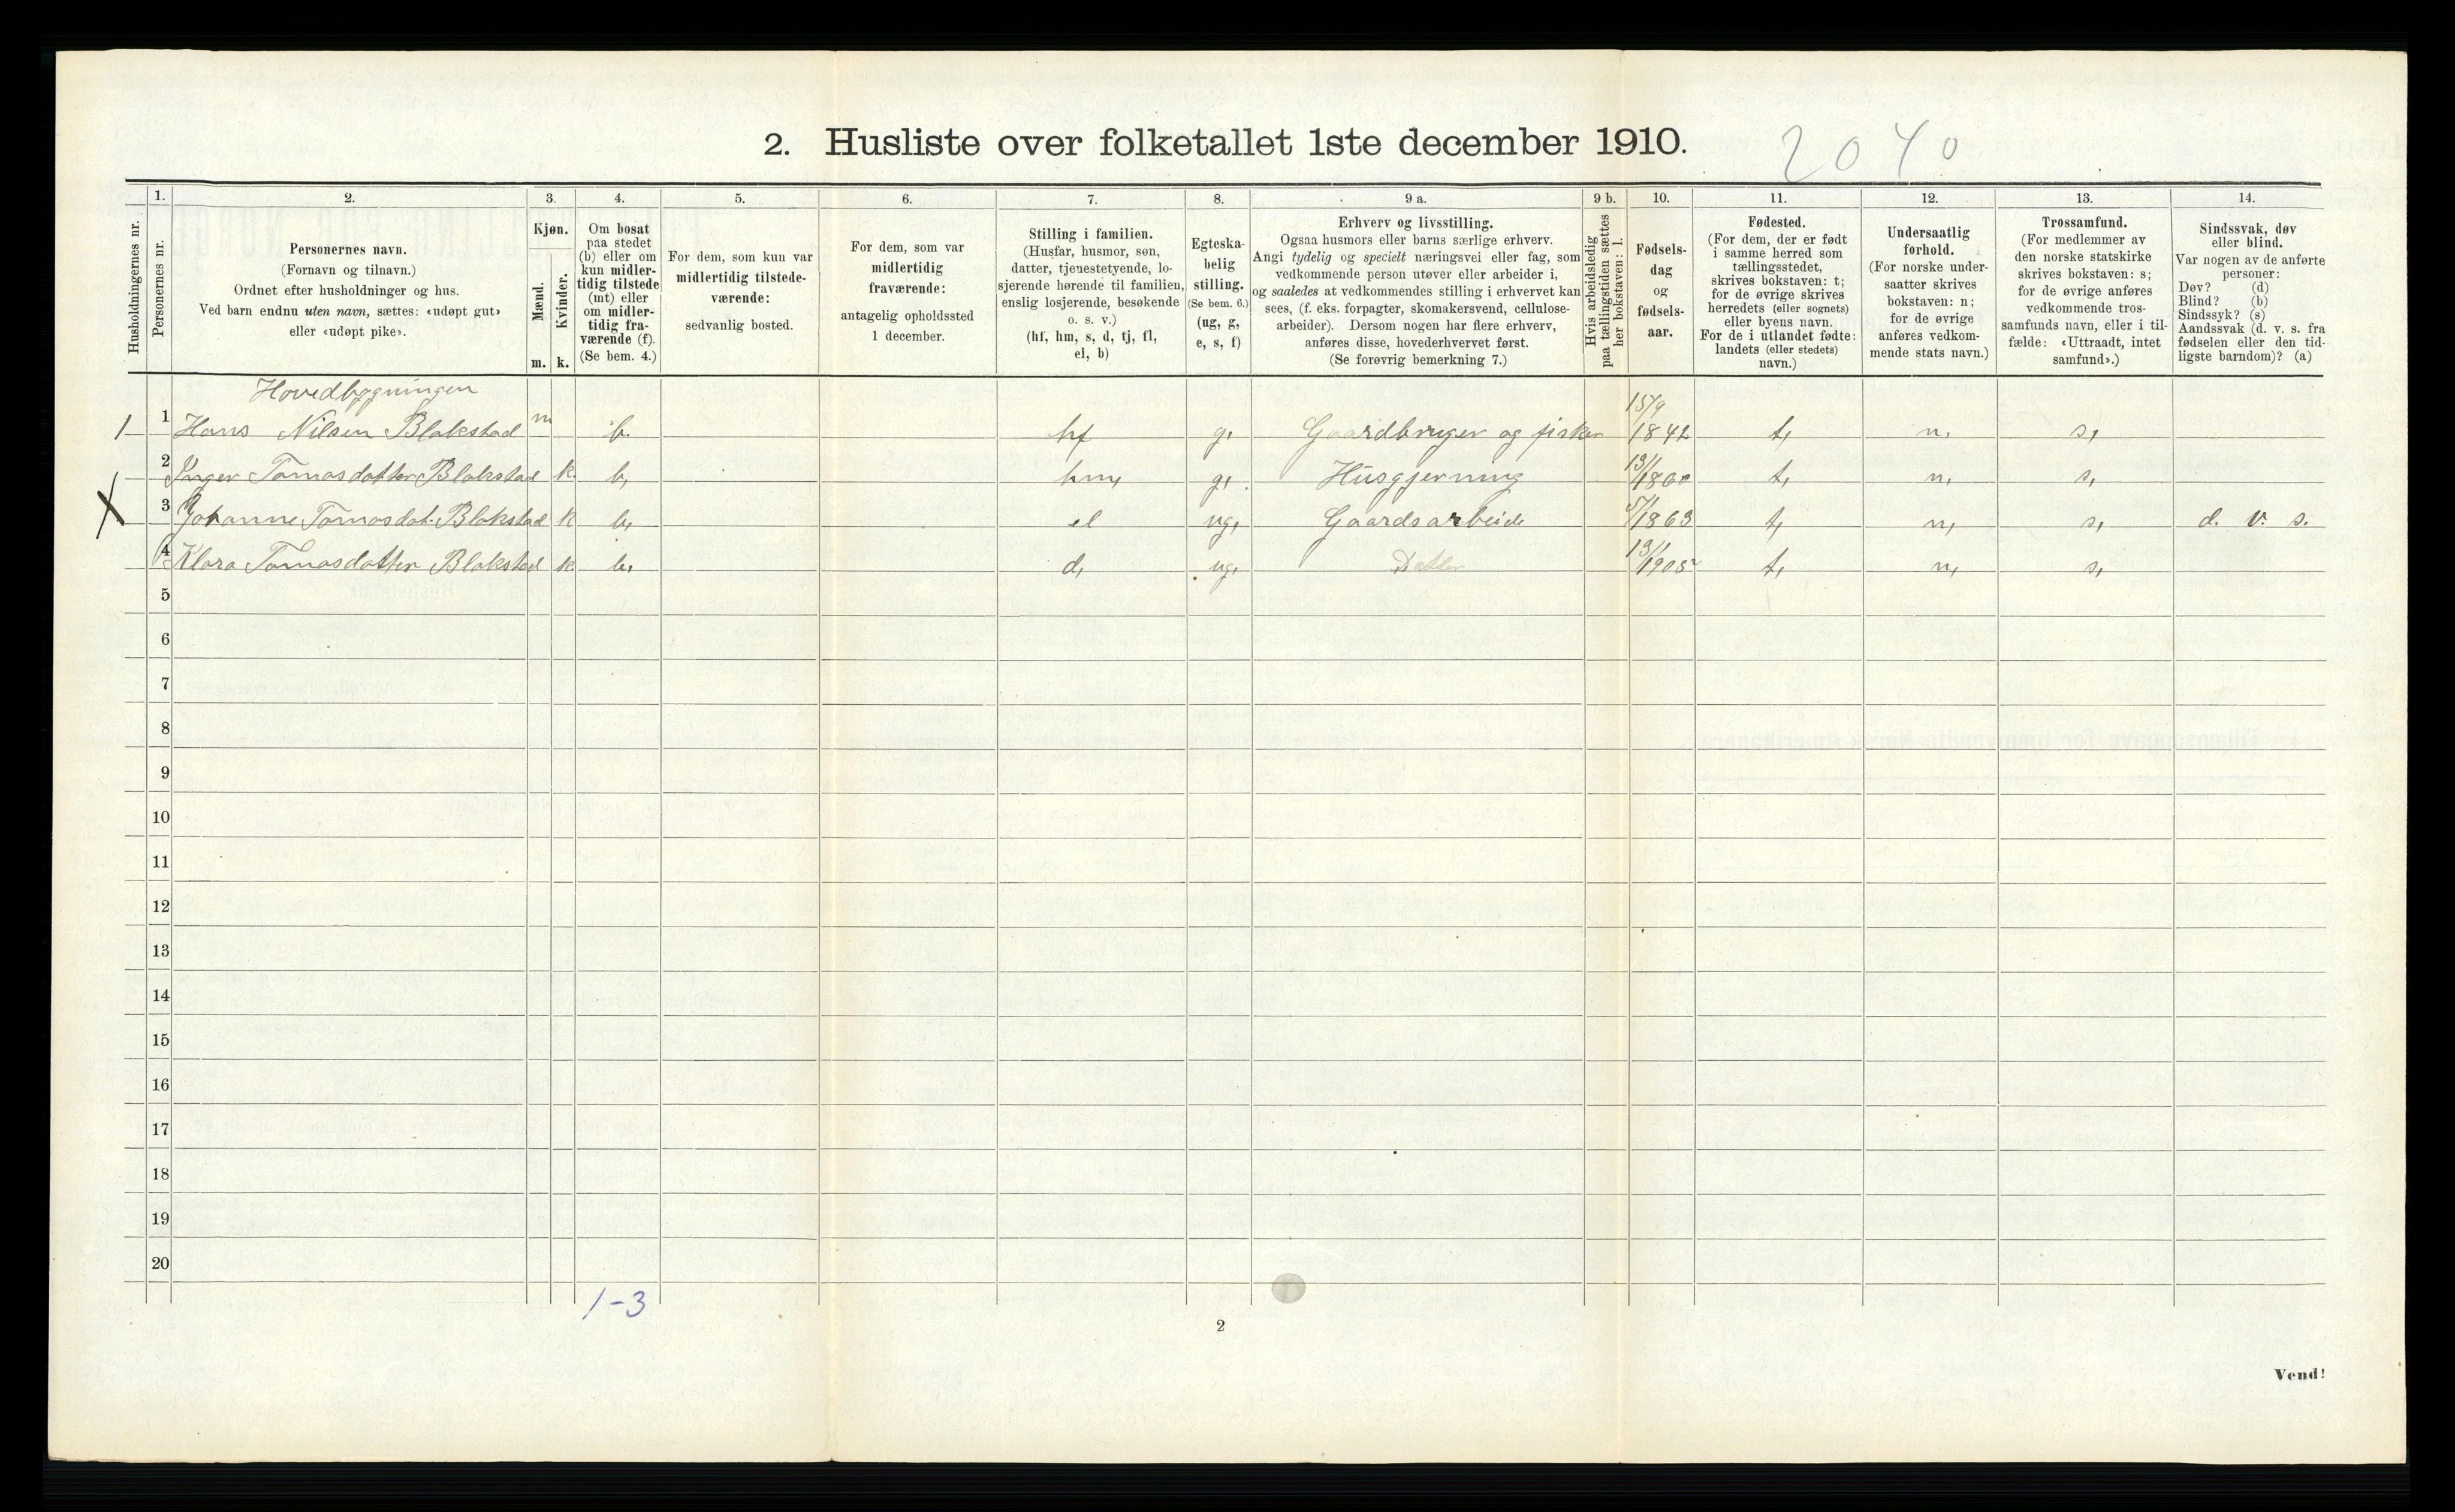 2. Husliste over folketallet 1ste december 1910.
2040
Husholdningernes nr.
1.
Personernes nr.
2.
Personernes navn.
(Fornavn og tilnavn.)
Ordnet efter husholdninger og hus.
Ved barn endnu uten navn, sættes: «udøpt gut»
eller «udøpt pike».
3.
Kjøn.
Mænd.
Kvinder.
m. k.
4.
Om bosat
paa stedet
(b) eller om
kun midler-
tidig tilstede
(mt) eller
om midler-
tidig fra-
værende (f).
(Se bem. 4.)
5.
For dem, som kun var
midlertidig tilstede-
værende:
sedvanlig bosted.
6.
For dem, som var
midlertidig
fraværende:
antagelig opholdssted
1 december.
7.
Stilling i familien.
(Husfar, husmor, søn,
datter, tjenestetyende, lo-
sjerende hørende til familien,
enslig losjerende, besøkende
o. s. v.)
(hf, hm, s, d, tj, fl,
el, b)
8.
Egteska-
belig
stilling.
(Se bem. 6.)
(ug, g,
e, s, f)
9 a.
Erhverv og livsstilling.
Ogsaa husmors eller barns særlige erhverv.
Angi tydelig og specielt næringsvei eller fag, som
vedkommende person utøver eller arbeider i,
og saaledes at vedkommendes stilling i erhvervet kan
sees, (f. eks. forpagter, skomakersvend, cellulose-
arbeider). Dersom nogen har flere erhverv,
anføres disse, hovederhvervet først.
(Se forøvrig bemerkning 7.)
9 b.
Hvis arbeidsledig
paa tællingstiden sættes
her bokstaven: l.
10.
Fødsels-
dag
og
fødsels-
aar.
11.
Fødested.
(For dem, der er født
i samme herred som
tællingsstedet,
skrives bokstaven: t;
for de øvrige skrives
herredets (eller sognets)
eller byens navn.
For de i utlandet fødte:
landets (eller stedets)
navn.)
12.
Undersaatlig
forhold.
(For norske under-
saatter skrives
bokstaven: n;
for de øvrige
anføres vedkom-
mende stats navn.)
13.
Trossamfund.
(For medlemmer av
den norske statskirke
skrives bokstaven: s;
for de øvrige anføres
vedkommende tros-
samfunds navn, eller i til-
fælde: «Uttraadt, intet
samfund».)
14.
Sindssvak, døv
eller blind.
Var nogen av de anførte
personer:
Døv? (d)
Blind? (b)
Sindssyk? (s)
Aandssvak (d. v. s. fra
fødselen eller den tid-
ligste barndom)? (a)
Hovedbygningen
1 1 Hans Nilsen Blakstad m b. hf g, Gaardbruger og fisker 15/9 1842 t, n, s,
2 Inger Tomasdatter Blakstad k b, hm, g, Husgjerning t, n, s,
X 3 Johanne Tomasdat. Blakstad k b, el ug, Gaardsarbeide 1863 t, n, s, d. v. s.
4 Klara Tomasdatter Blakstad k b, d, ug, Datter t, n, s,
5
6
7
8
9
10
11
12
13
14
15
16
17
18
19
20
1-3
2
Vend!